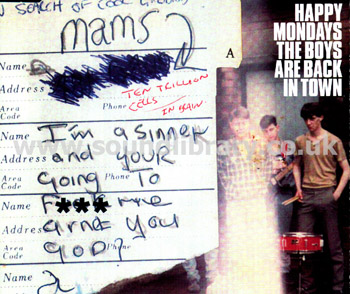 N SEARCH OF COOL
mams
A
Name
Address
TEN TRILLION
CELLS
IN BRAIN
Area Code Phone
Name I'm a sinner
Address and your
Area Code going Phone To
Name F*** me
Address arnet you
Area Code GOD Phone
Name
HAPPY
MONDAYS
THE BOYS
ARE BACK
IN TOWN